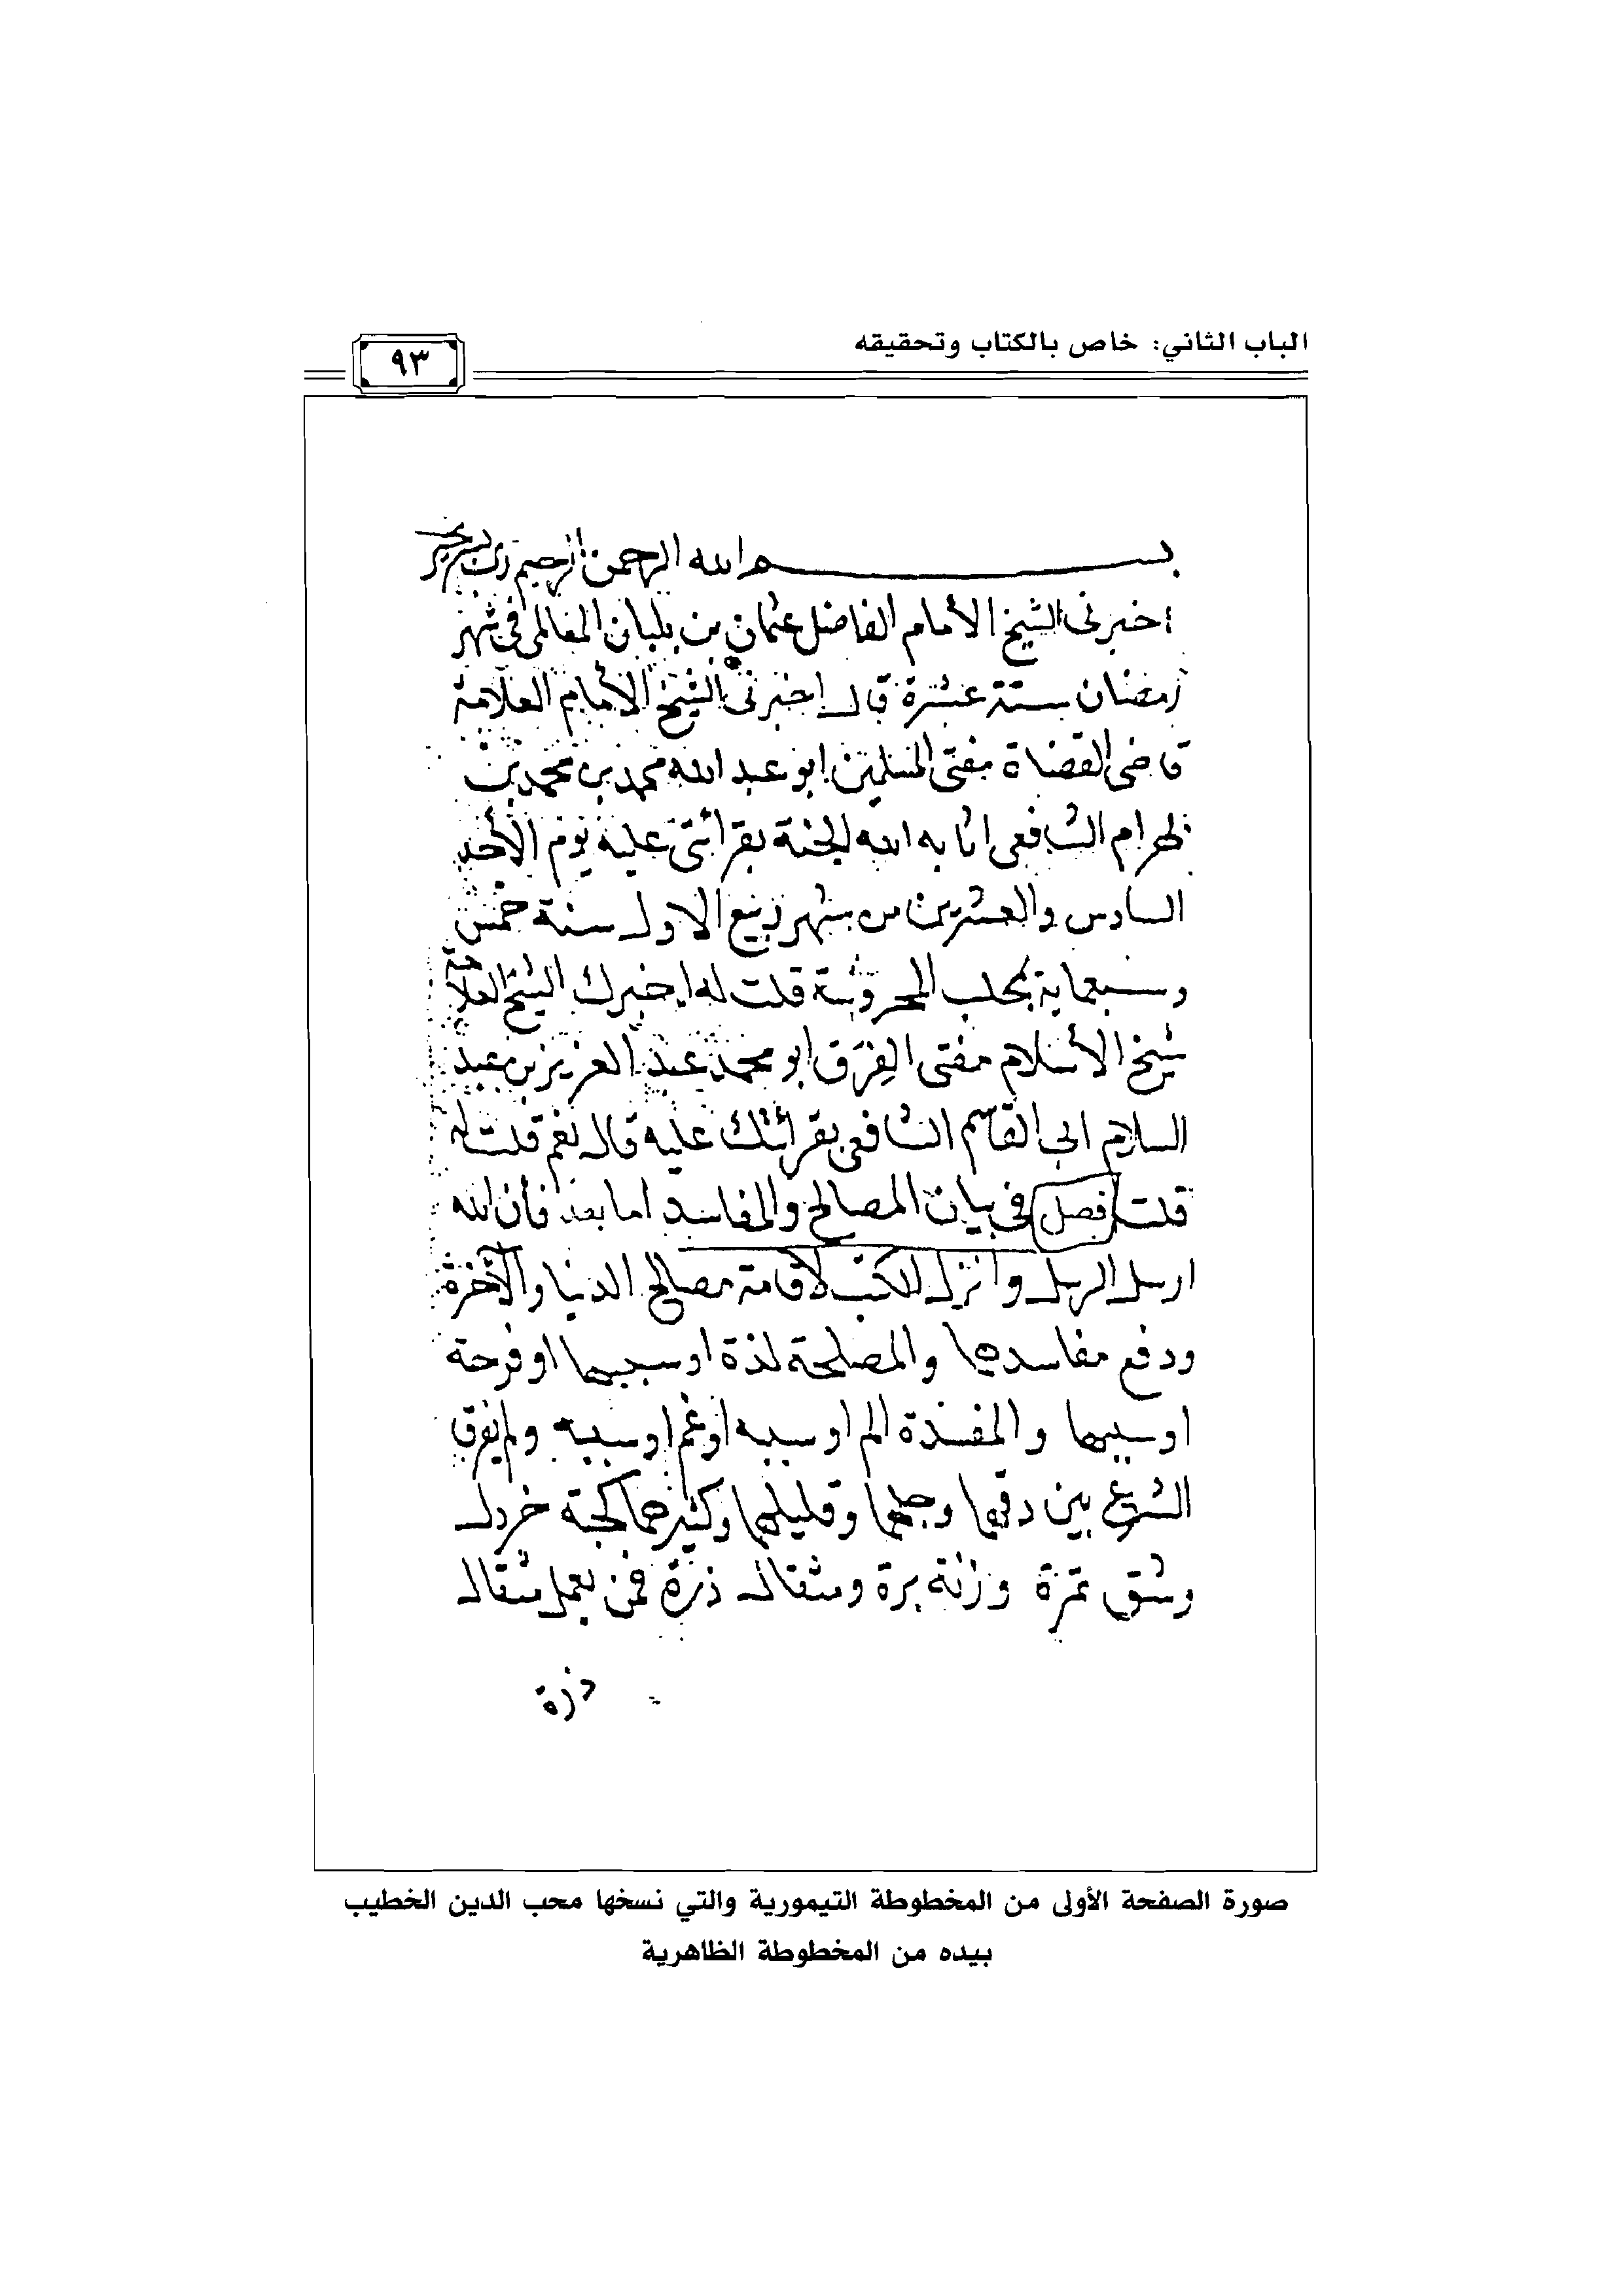 الباب الثاني: خاص بالكتاب وتحقيقه
٩٣
بسم الله الرحمن الرحيم رب يسر بخير
اخبرنى الشيخ الأمام الفاضل عثمان بن بلبان المقاتلى فى شهر
رمضان ستة عشرة قال اخبرنى الشيخ الأمام العلامة
قاضى القضاة مفتى المسلمين ابو عبد الله محمد بن محمد بن
بهرام الشافعى اثابه الله الجنة بقرائتى عليه يوم الأحد
السادس والعشرين من شهر ربيع الاول سنة خمس
وسبعماية بحلب المحروسة قلت له اخبرك الشيخ العلامة
شيخ الأسلام مفتى الفِرَق ابو محمد عبد العزيز بن عبد
السلام ابى القاسم الشافعى بقرائتك عليه قال نعم قلت له
قلت فصل فى بيان المصالح والمفاسد اما بعد فأن الله
ارسل الرسل وانزل الكتب لأقامة مصالح الدنيا والآخرة
ودفع مفاسدها والمصلحة لذة اوسببها اوفرحة
اوسببها والمفسدة الم اوسببه اوغم اوسببه ولم يفرق
الشرع بين دقها وجلها وقليلها وكثيرها كحبة خردل
وشق تمرة وزنة برة ومثقال ذرة فمن يعمل مثقال
ذرة
صورة الصفحة الأولى من المخطوطة التيمورية والتي نسخها محب الدين الخطيب
بيده من المخطوطة الظاهرية